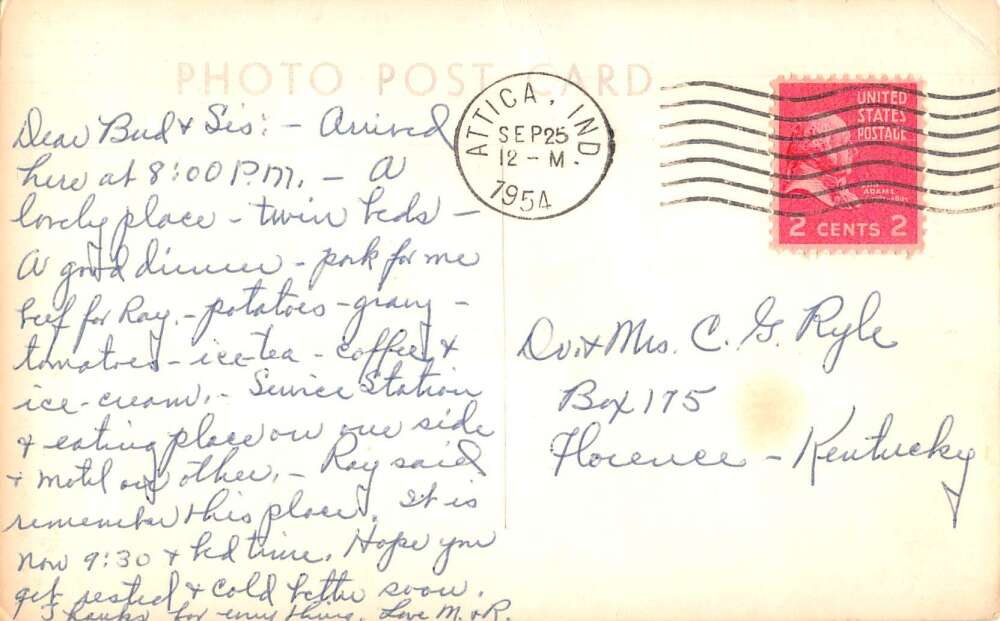 PHOTO POST CARD
Dear Bud & Sis: - Arrived
here at 8:00 P.M. - A
lovely place - twin beds -
A good dinner - pork for me
beef for Ray. - potatoes - gravy -
tomatoes - ice-tea - coffee &
ice-cream. - Service Station
& eating place on one side
& motel on other. - Ray said
remember this place. It is
now 9:30 & bed time. Hope you
get rested & cold better soon.
Thanks for everything. Love M. & R.
ATTICA, IND.
SEP 25
12 - M
1954
UNITED
STATES
POSTAGE
ADAMS
2 CENTS 2
Dr. & Mrs. C. G. Ryle
Box 175
Florence - Kentucky